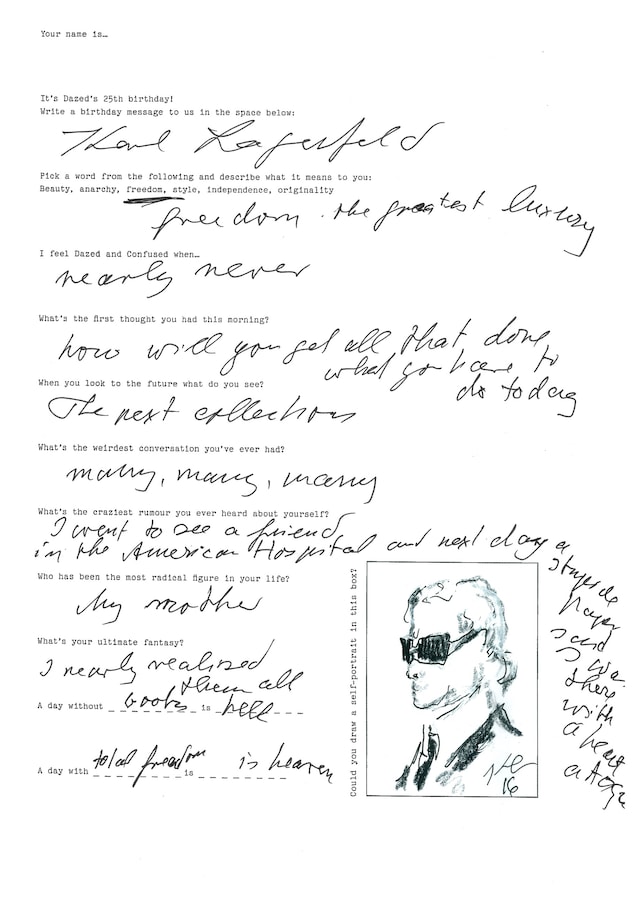 Your name is…
It's Dazed's 25th birthday!
Write a birthday message to us in the space below:
Karl Lagerfeld
Pick a word from the following and describe what it means to you:
Beauty, anarchy, freedom, style, independence, originality
freedom. the greatest luxury
I feel Dazed and Confused when…
nearly never
What's the first thought you had this morning?
how will you get all that done
what you have to
do today
When you look to the future what do you see?
The next collections
What's the weirdest conversation you've ever had?
many, many, many
What's the craziest rumour you ever heard about yourself?
I went to see a friend
in the American Hospital and next day a
stupide
paper
said
I was
there
with
a heart
attack
Who has been the most radical figure in your life?
My mother
What's your ultimate fantasy?
I nearly realized
them all
A day without books is hell
A day with total freedom is heaven
Could you draw a self-portrait in this box?
16